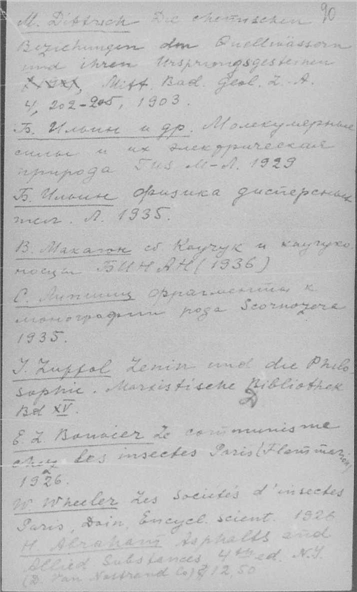 90
M. Dittrich Die chemischen
Beziehungen den Quellwässern
und ihren Ursprungsgesteinen
Mitt. Bad. Geol. L. A.
4, 202-205, 1903.
Б. Ильин и др. Молекулярные
силы и их электрическая
природа ГИЗ М-Л. 1929
Б. Ильин физика дисперсных
тел. Л. 1935.
В. Макагон сб Каучук и каучуко
носцы БИН АН (1936)
С. Липшиц Фрагменты к
монографии рода Scorzonera
1935.
Lenin und die Philo
sophie. Marxistische Bibliothek
Bd XV.
E. L. Bouvier Le communisme
chez les insectes Paris (Flammarion)
1926.
W. Wheeler Les Societés d'insectes
Paris, Doin, Encycl. scient. 192
H. Abraham Asphalts and
Allied Substances, 4th ed. N.Y.
(D. Van Nostrand Co) $ 12.50